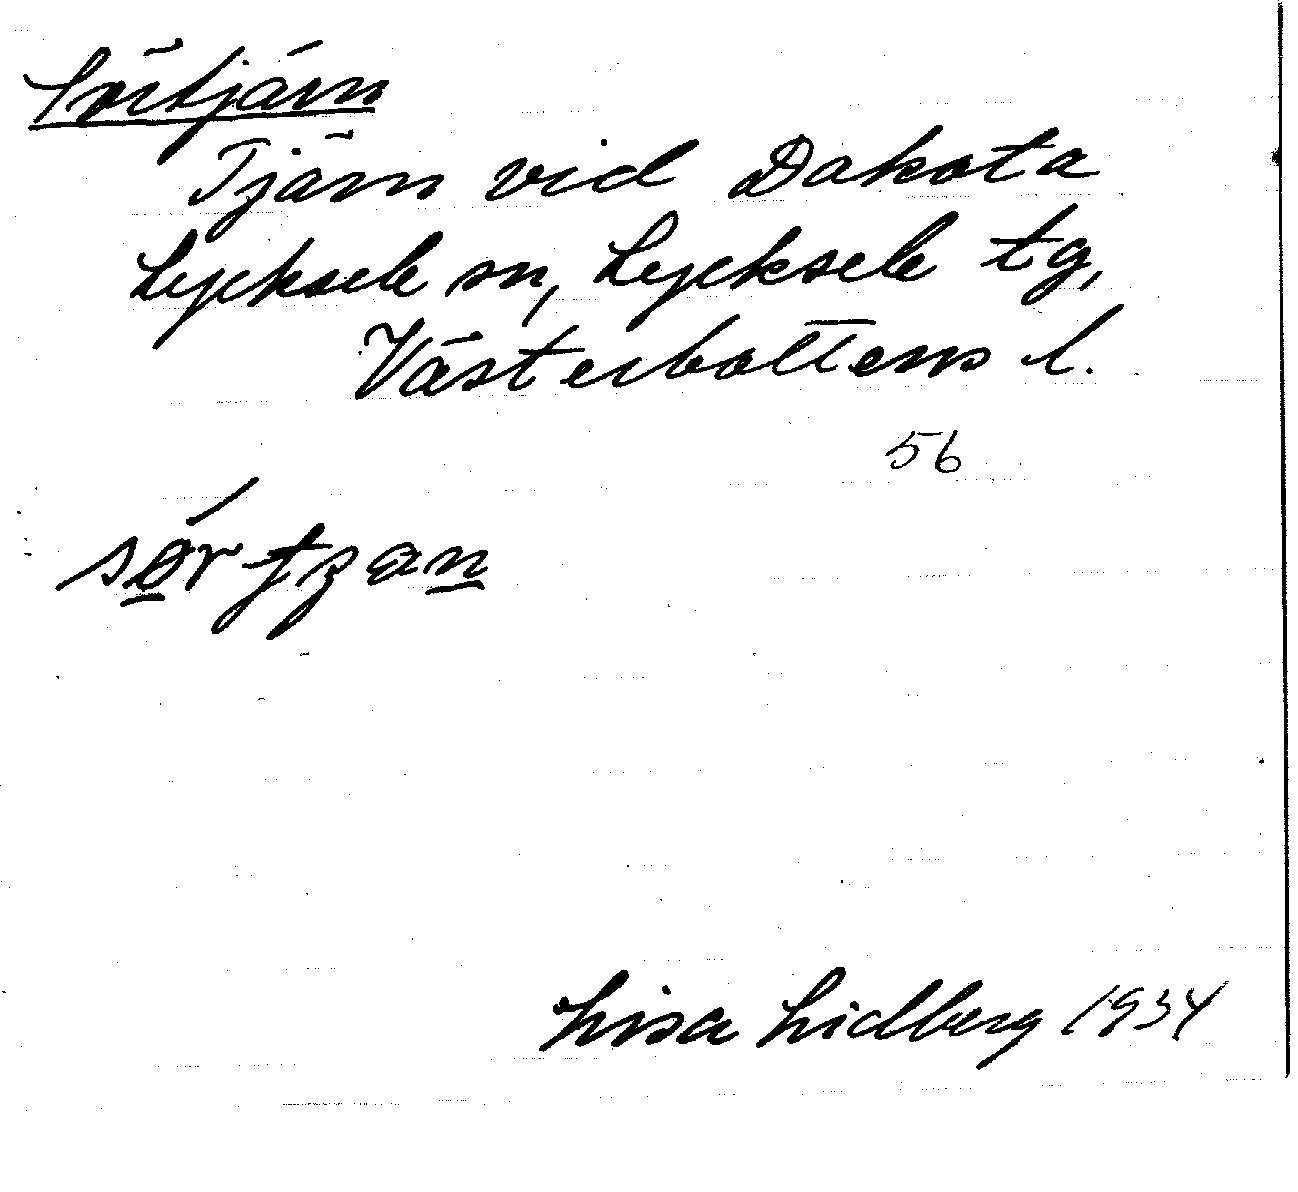 Sörtjärn
Tjärn vid Dakota
Lycksele sn, Lycksele tg,
Västerbottens l.
56
Lisa Lidberg 1934